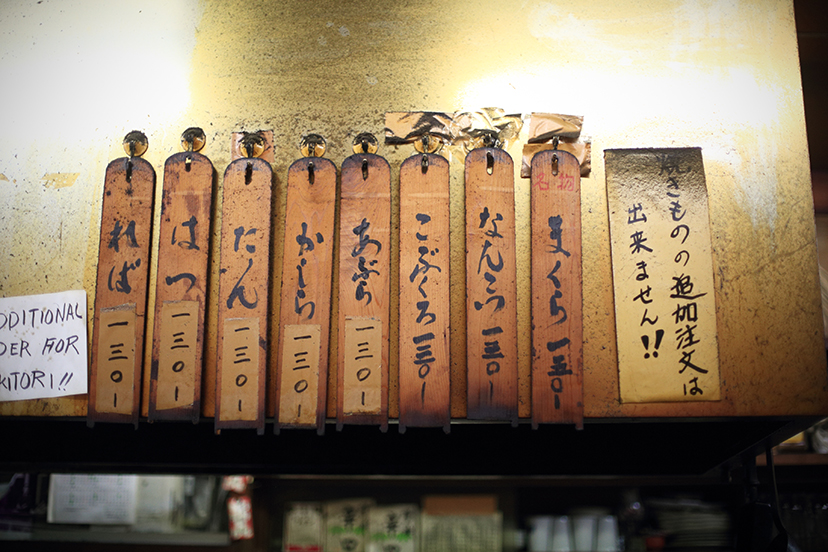 焼きものの追加注文は
出来ません!!
名物
まくら一五〇-
なんこつ一三〇-
こぶくろ一三〇-
あぶら
一三〇-
かしら
一三〇-
たん
一三〇-
はつ
一三〇-
れば
一三〇-
DDITIONAL
DER FOR
KITORI!!